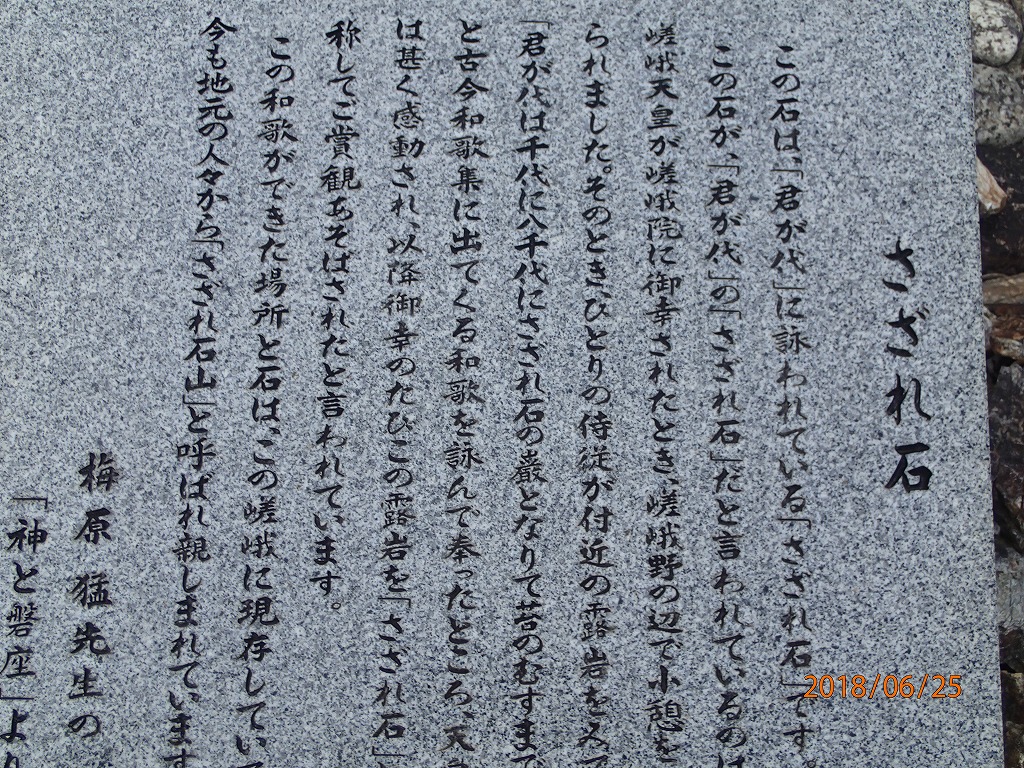 さざれ石
この石は、「君が代」に詠われている「さざれ石」です。
この石が、「君が代」の「さざれ石」だと言われているのは
嵯峨天皇が嵯峨院に御幸されたとき、嵯峨野の辺で小憩を
られました。そのとき、ひとりの侍従が付近の露岩をみて
「君が代は千代に八千代にさざれ石の巌となりて苔のむすまで
と古今和歌集に出てくる和歌を詠んで奉ったところ、天
は甚く感動され、以降御幸のたびこの露岩を「さざれ石」と
称してご賞観あそばされたと言われています。
この和歌ができた場所と石は、この嵯峨に現存してい
今も地元の人々から「さざれ石山」と呼ばれ親しまれています
梅原猛先生の
「神と磐座」より
2018/06/25